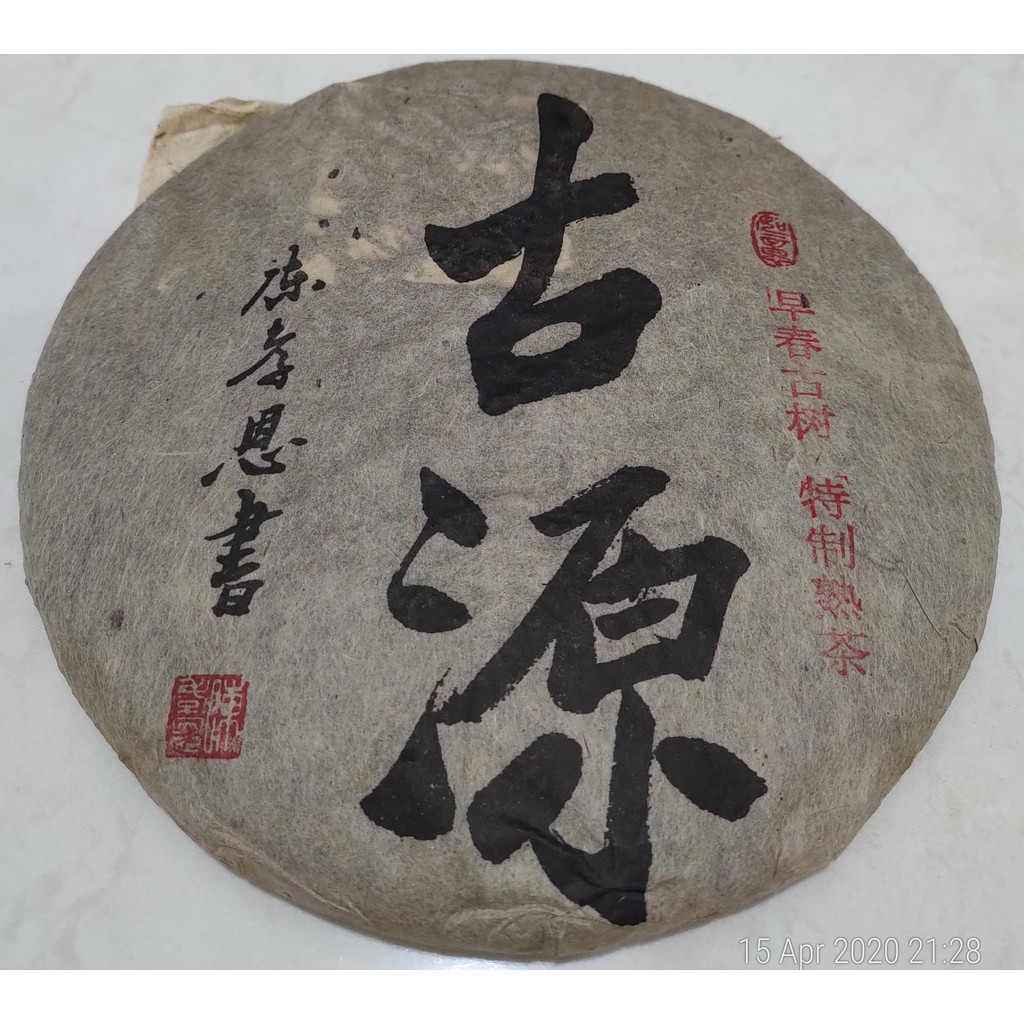 早春古树 特制熟茶
古源
孝恩書
15 Apr 2020 21:28